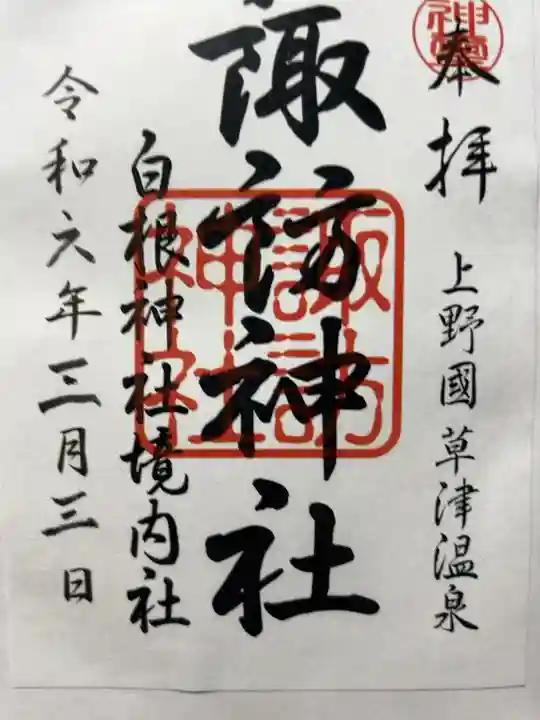 奉拝
上野國草津温泉
諏訪神社
諏訪神社
白根神社境内社
令和六年三月三日